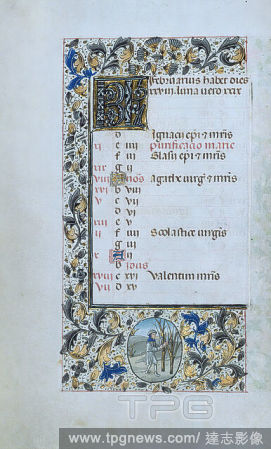 KL Februarius habet dies
xxviii. luna vero xxix
d
Ignacii epi ⁊ mris
xi e iiii purificacio marie
f iii Blasii epi ⁊ mris
xix g ii
viii Nos Agathe virgis ⁊ mris
xvi b viii
v c vii
d vi
e v
ii f iiii Scolastice virgis
g iii
x A ii
b Idus
xviii c xvi Valentini mris
vii d xv
TPG
www.tpgnews.com/ 達志影像